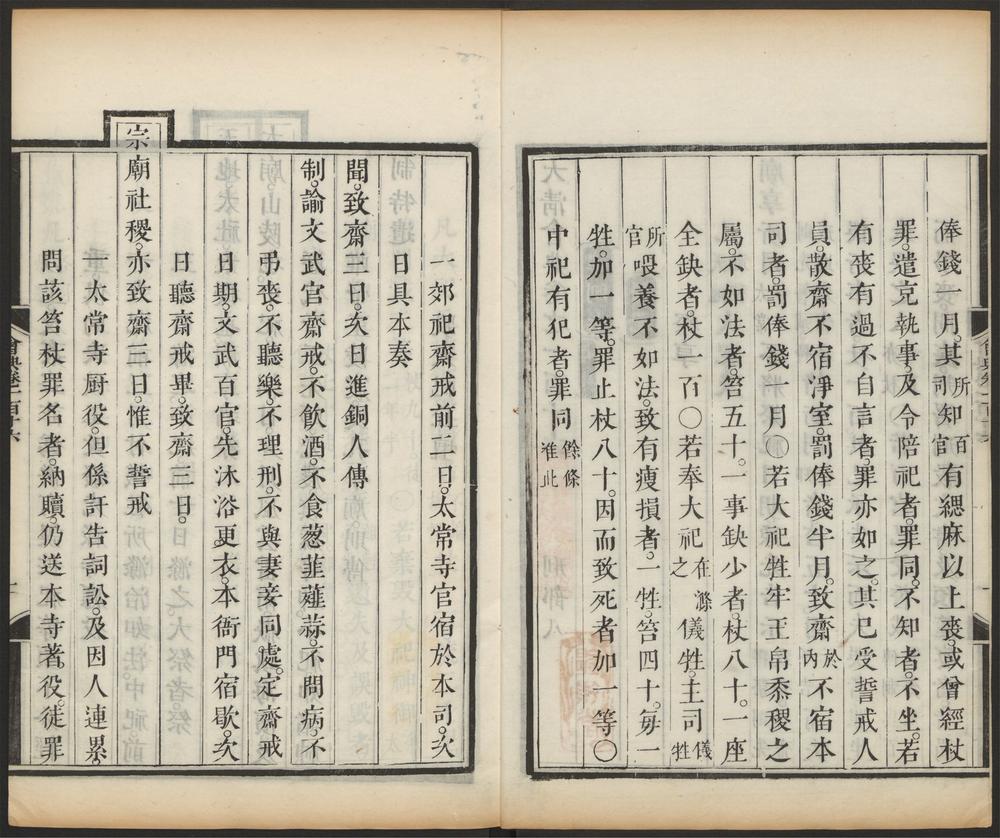 俸錢一月。其所司知百官有緦麻以上喪。或曾經杖
罪。遣克執事。及令陪祀者。罪同。不知者。不坐。若
有喪有過不自言者。罪亦如之。其已受誓戒人
員。散齋不宿淨室。罰俸錢半月。致齋於內不宿本
司者。罰俸錢一月〇若大祀牲牢玉帛黍稷之
屬。不如法者。笞五十。一事缺少者。杖八十。一座
全缺者。杖一百〇若奉大祀在滌之儀牲。主司儀牲
所官喂養不如法。致有瘦損者。一牲。笞四十。每一
牲。加一等。罪止杖八十。因而致死者。加一等〇
中祀有犯者。罪同餘條准此
一郊祀齋戒前二日。太常寺官宿於本司。次
日具本奏
聞。致齋三日。次日進銅人傳
制。諭文武官齋戒。不飲酒。不食葱韮薤蒜。不問病。不
弔喪。不聽樂。不理刑。不與妻妾同處。定齋戒
日期。文武百官。先沐浴更衣。本衙門宿歇。次
日聽齋戒畢。致齋三日。
宗廟社稷。亦致齋三日。惟不誓戒
一太常寺厨役。但係訐告詞訟。及因人連累。
問該笞杖罪名者。納贖。仍送本寺著役。徒罪